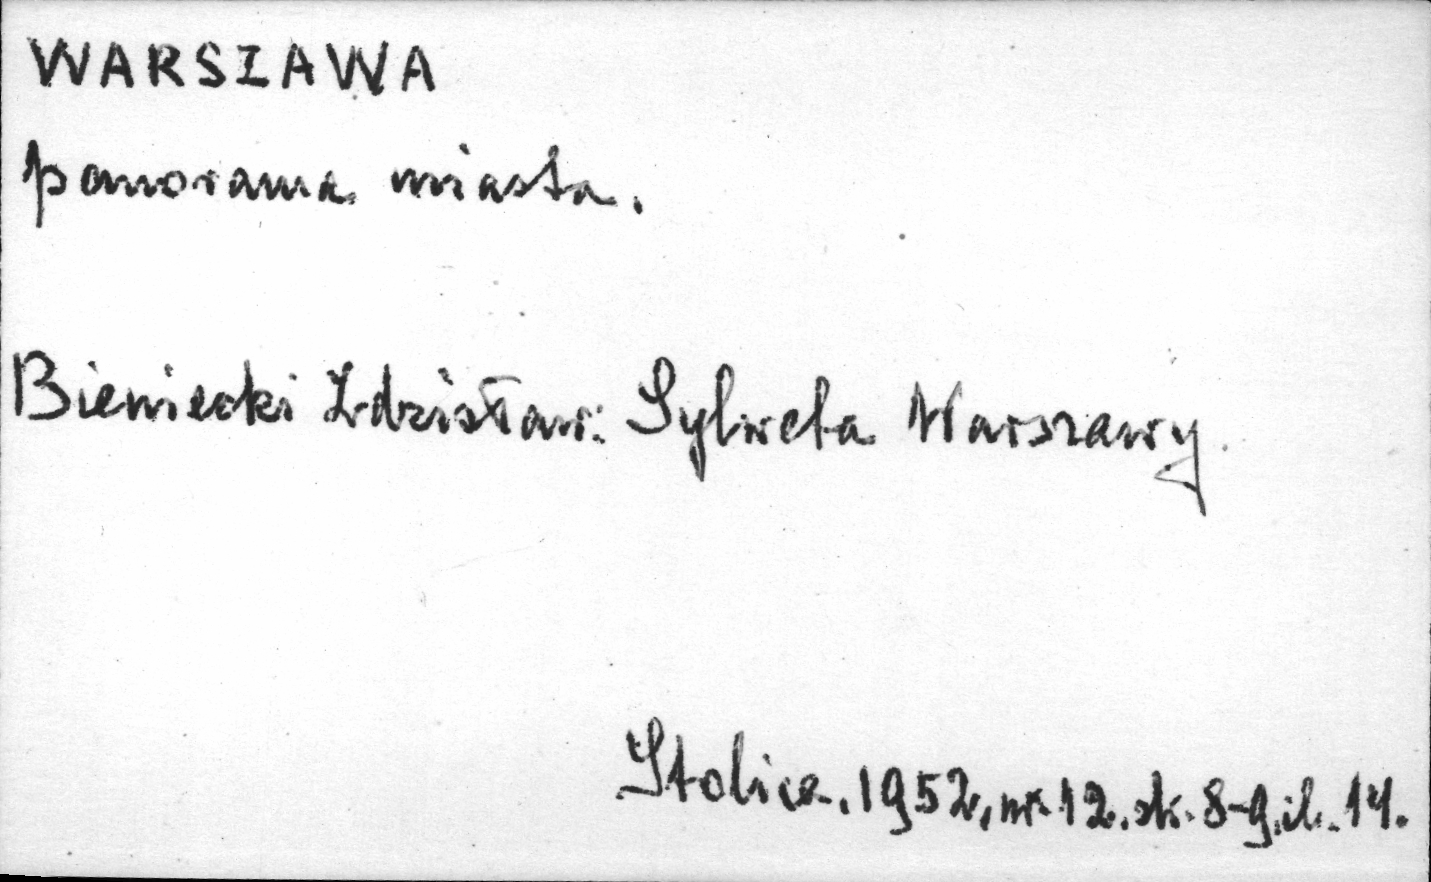 WARSZAWA
panorama miasta.
Bieniecki Zdzisław: Sylweta Warszawy.
Stolica. 1952, nr 12. str. 8-9. il. 14.